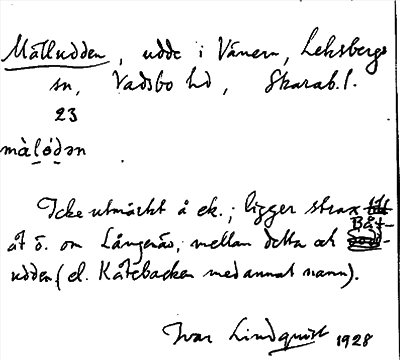 Mälludden, udde i Vänern, Leksbergs
sn, Vadsbo hd, Skarab. l.
23
màlodən
Icke utmärkt å ek.; ligger strax
åt ö. om Långenäs, mellan detta och Båt-
udden (el. Kåtebacken med annat namn).
Ivar Lindquist 1928